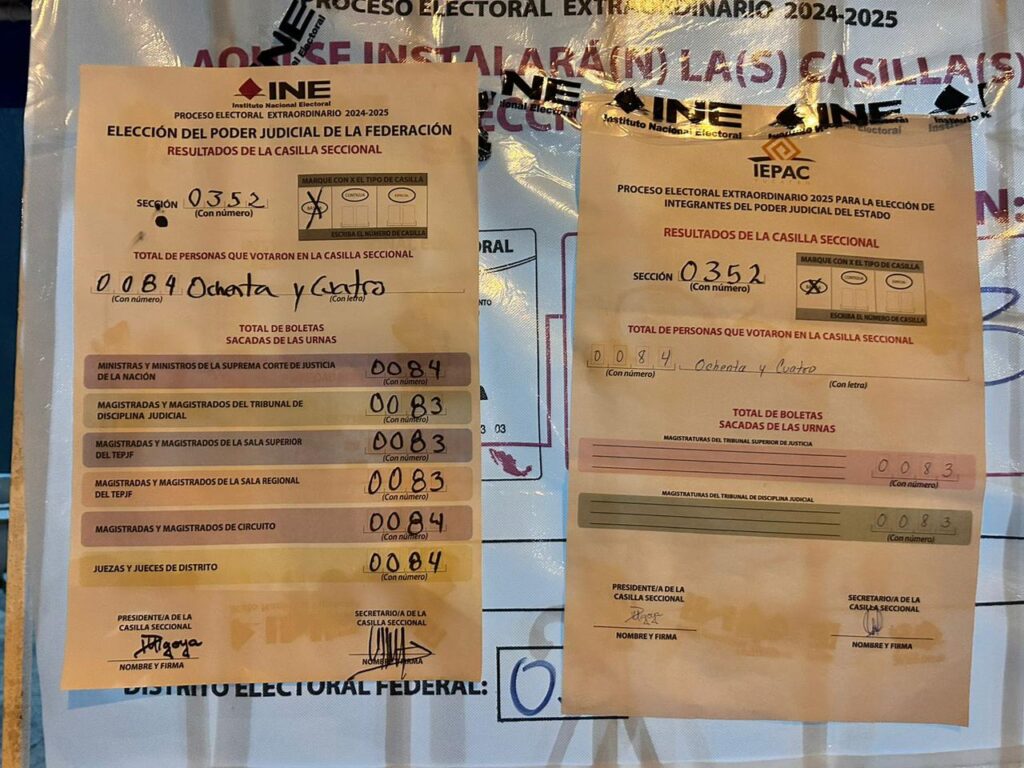 PROCESO ELECTORAL EXTRAORDINARIO 2024-2025
AQUÍ SE INSTALARÁ(N) LA(S) CASILLA(S)
INE
Instituto Nacional Electoral
PROCESO ELECTORAL EXTRAORDINARIO 2024-2025
ELECCIÓN DEL PODER JUDICIAL DE LA FEDERACIÓN
RESULTADOS DE LA CASILLA SECCIONAL
SECCIÓN 0352
(Con número)
MARQUE CON X EL TIPO DE CASILLA
CONTIGUA
ESPECIAL
ESCRIBA EL NÚMERO DE CASILLA
TOTAL DE PERSONAS QUE VOTARON EN LA CASILLA SECCIONAL
0084 Ochenta y Cuatro
(Con número) (Con letra)
TOTAL DE BOLETAS
SACADAS DE LAS URNAS
MINISTRAS Y MINISTROS DE LA SUPREMA CORTE DE JUSTICIA
DE LA NACIÓN
0084
(Con número)
MAGISTRADAS Y MAGISTRADOS DEL TRIBUNAL DE
DISCIPLINA JUDICIAL
0083
(Con número)
MAGISTRADAS Y MAGISTRADOS DE LA SALA SUPERIOR
DEL TEPJF
0083
(Con número)
MAGISTRADAS Y MAGISTRADOS DE LA SALA REGIONAL
DEL TEPJF
0083
(Con número)
MAGISTRADAS Y MAGISTRADOS DE CIRCUITO
0084
(Con número)
JUEZAS Y JUECES DE DISTRITO
0084
(Con número)
PRESIDENTE/A DE LA
CASILLA SECCIONAL
NOMBRE Y FIRMA
SECRETARIO/A DE LA
CASILLA SECCIONAL
NOMBRE Y FIRMA
INE
Instituto Nacional Electoral
INE
IEPAC
PROCESO ELECTORAL EXTRAORDINARIO 2025 PARA LA ELECCIÓN DE
INTEGRANTES DEL PODER JUDICIAL DEL ESTADO
RESULTADOS DE LA CASILLA SECCIONAL
SECCIÓN 0352
(Con número)
MARQUE CON X EL TIPO DE CASILLA
CONTIGUA
ESPECIAL
ESCRIBA EL NÚMERO DE CASILLA
TOTAL DE PERSONAS QUE VOTARON EN LA CASILLA SECCIONAL
0084 Ochenta y Cuatro
(Con número) (Con letra)
TOTAL DE BOLETAS
SACADAS DE LAS URNAS
MAGISTRATURAS DEL TRIBUNAL SUPERIOR DE JUSTICIA
0083
(Con número)
MAGISTRATURAS DEL TRIBUNAL DE DISCIPLINA JUDICIAL
0083
(Con número)
PRESIDENTE/A DE LA
CASILLA SECCIONAL
NOMBRE Y FIRMA
SECRETARIO/A DE LA
CASILLA SECCIONAL
NOMBRE Y FIRMA
DISTRITO ELECTORAL FEDERAL: